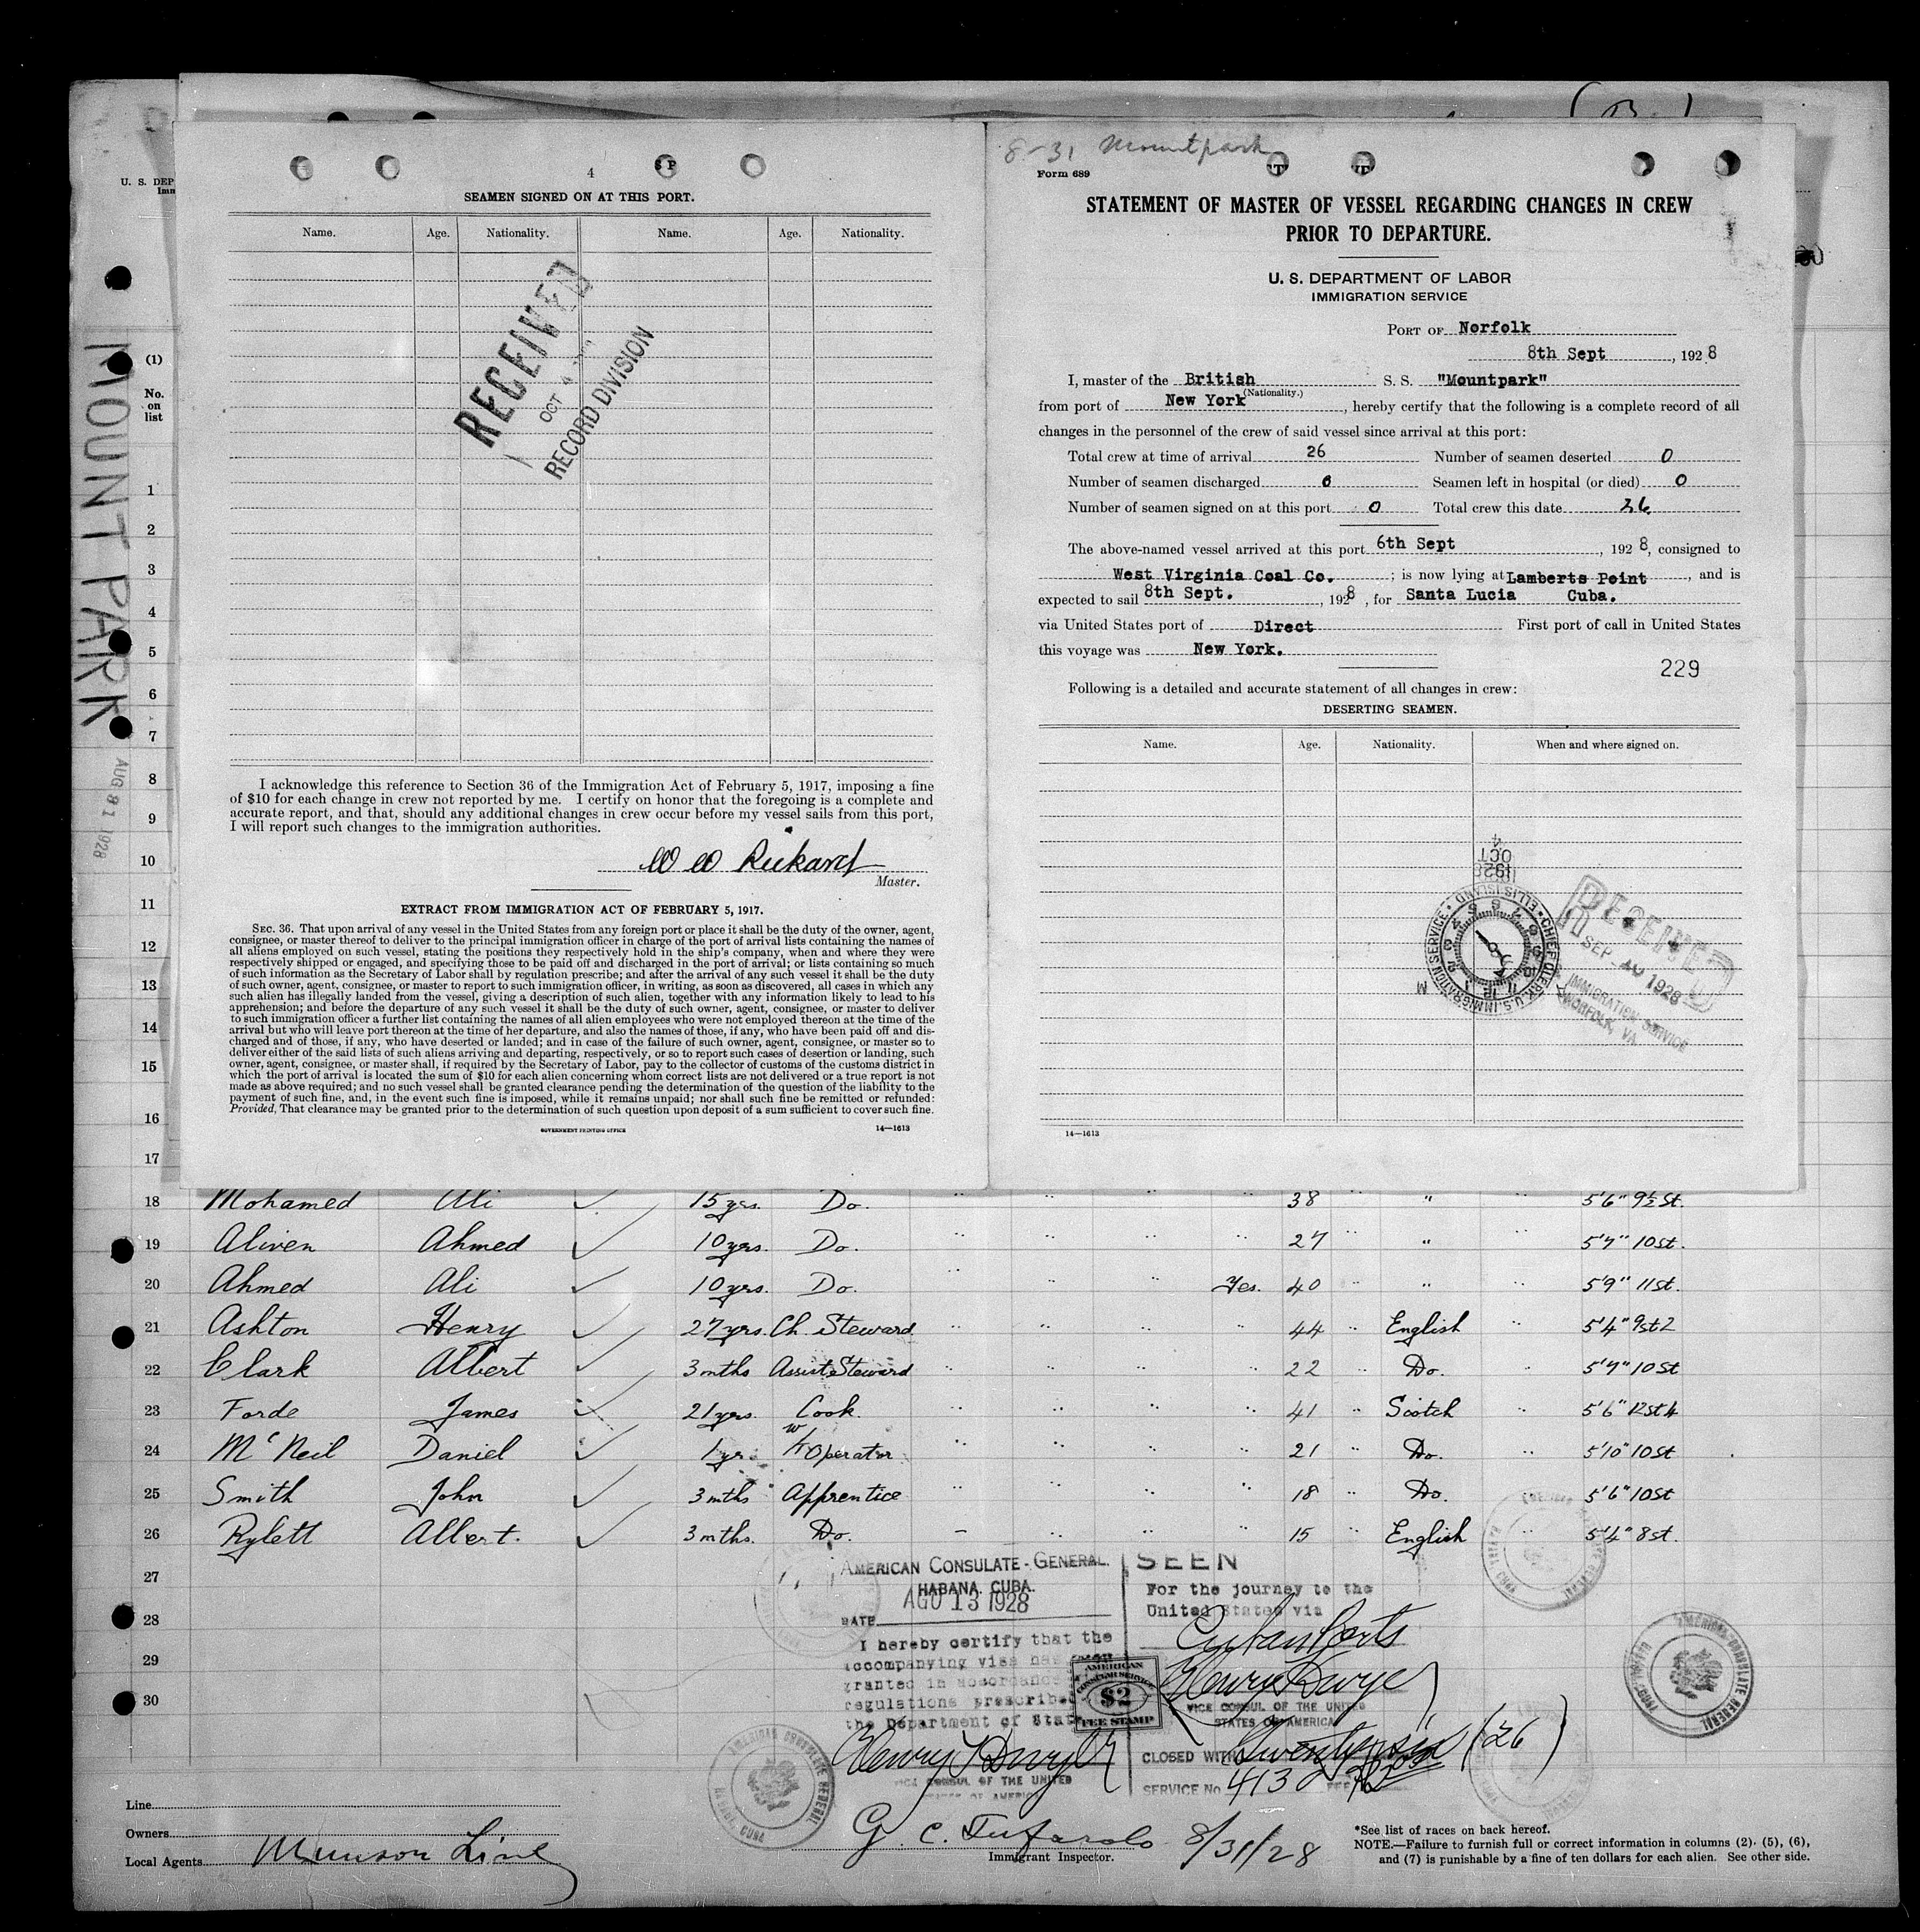 8-31 Mountpark
4
SEAMEN SIGNED ON AT THIS PORT.
Name. Age. Nationality. Name. Age. Nationality.
RECEIVED
OCT 4
RECORD DIVISION
I acknowledge this reference to Section 36 of the Immigration Act of February 5, 1917, imposing a fine
of $10 for each change in crew not reported by me. I certify on honor that the foregoing is a complete and
accurate report, and that, should any additional changes in crew occur before my vessel sails from this port,
I will report such changes to the immigration authorities.
W W Rickard
Master.
EXTRACT FROM IMMIGRATION ACT OF FEBRUARY 5, 1917.
SEC. 36. That upon arrival of any vessel in the United States from any foreign port or place it shall be the duty of the owner, agent,
consignee, or master thereof to deliver to the principal immigration officer in charge of the port of arrival lists containing the names of
all aliens employed on such vessel, stating the positions they respectively hold in the ship's company, when and where they were
respectively shipped or engaged, and specifying those to be paid off and discharged in the port of arrival; or lists containing so much
of such information as the Secretary of Labor shall by regulation prescribe; and after the arrival of any such vessel it shall be the duty
of such owner, agent, consignee, or master to report to such immigration officer, in writing, as soon as discovered, all cases in which any
such alien has illegally landed from the vessel, giving a description of such alien, together with any information likely to lead to his
apprehension; and before the departure of any such vessel it shall be the duty of such owner, agent, consignee, or master to deliver
to such immigration officer a further list containing the names of all alien employees who were not employed thereon at the time of the
arrival but who will leave port thereon at the time of her departure, and also the names of those, if any, who have been paid off and dis-
charged and of those, if any, who have deserted or landed; and in case of the failure of such owner, agent, consignee, or master so to
deliver either of the said lists of such aliens arriving and departing, respectively, or so to report such cases of desertion or landing, such
owner, agent, consignee, or master shall, if required by the Secretary of Labor, pay to the collector of customs of the customs district in
which the port of arrival is located the sum of $10 for each alien concerning whom correct lists are not delivered or a true report is not
made as above required; and no such vessel shall be granted clearance pending the determination of the question of the liability to the
payment of such fine, and, in the event such fine is imposed, while it remains unpaid; nor shall such fine be remitted or refunded:
Provided, That clearance may be granted prior to the determination of such question upon deposit of a sum sufficient to cover such fine.
GOVERNMENT PRINTING OFFICE 14—1613
Form 689
STATEMENT OF MASTER OF VESSEL REGARDING CHANGES IN CREW
PRIOR TO DEPARTURE.
U. S. DEPARTMENT OF LABOR
IMMIGRATION SERVICE
PORT OF Norfolk
8th Sept, 1928
I, master of the British S. S. "Mountpark"
(Nationality.)
from port of New York, hereby certify that the following is a complete record of all
changes in the personnel of the crew of said vessel since arrival at this port:
Total crew at time of arrival 26 Number of seamen deserted 0
Number of seamen discharged 0 Seamen left in hospital (or died) 0
Number of seamen signed on at this port 0 Total crew this date 26
The above-named vessel arrived at this port 6th Sept, 1928, consigned to
West Virginia Coal Co.; is now lying at Lamberts Point, and is
expected to sail 8th Sept., 1928, for Santa Lucia Cuba.
via United States port of Direct First port of call in United States
this voyage was New York.
229
Following is a detailed and accurate statement of all changes in crew:
DESERTING SEAMEN.
Name. Age. Nationality. When and where signed on.
1928 OCT 4
CHIEF CLERK, U.S. IMMIGRATION SERVICE ELLIS ISLAND
RECEIVED
SEP 10 1928
IMMIGRATION SERVICE
NORFOLK, VA
14—1613
U. S. DEP
Imm
(1)
No.
on
list
MOUNT PARK
AUG 31 1928
1
2
3
4
5
6
7
8
9
10
11
12
13
14
15
16
17
18 Mohamed Ali 15 yrs. Do. " " " " 38 " " " 5'6" 9½ St.
19 Aliven Ahmed 10 yrs. Do. " " " " 27 " " 5'7" 10 st.
20 Ahmed Ali 10 yrs. Do. " " " Yes. 40 " " " 5'9" 11 st.
21 Ashton Henry 27 yrs. Ch. Steward " " " " 44 " English " 5'4" 9st 2
22 Clark Albert 3 mths Assist. Steward " " " " 22 " Do. " 5'7" 10 St
23 Forde James 21 yrs. Cook. " " " " 41 " Scotch " 5'6" 12 St 4
24 McNeil Daniel 1 yr. W/T Operator " " " " 21 " Do. " 5'10" 10 St
25 Smith John 3 mths Apprentice " " " " 18 " Do. 5'6" 10 St
26 Rylett Albert. 3 mths. Do. " " " " 15 " English " 5'4" 8 st.
27
28
29
30
AMERICAN CONSULATE-GENERAL.
HABANA, CUBA.
DATE AGO 13 1928
I hereby certify that the
accompanying visa has been
granted in accordance
regulations prescribed
the Department of State
Henry T Dwyer
VICE CONSUL OF THE UNITED
STATES OF AMERICA
AMERICAN
CONSULAR SERVICE
$2
FEE STAMP
SEEN
For the journey to the
United States via
Cuban Ports
Henry Dwyer
VICE CONSUL OF THE UNITED
STATES OF AMERICA
CLOSED WITH Twenty six (26)
SERVICE No 4132 FEE
AMERICAN CONSULATE GENERAL
HABANA, CUBA
Line
Owners
Local Agents Munson Line
G. C. Tufarolo 8/31/28
Immigrant Inspector.
*See list of races on back hereof.
NOTE.—Failure to furnish full or correct information in columns (2), (5), (6),
and (7) is punishable by a fine of ten dollars for each alien. See other side.